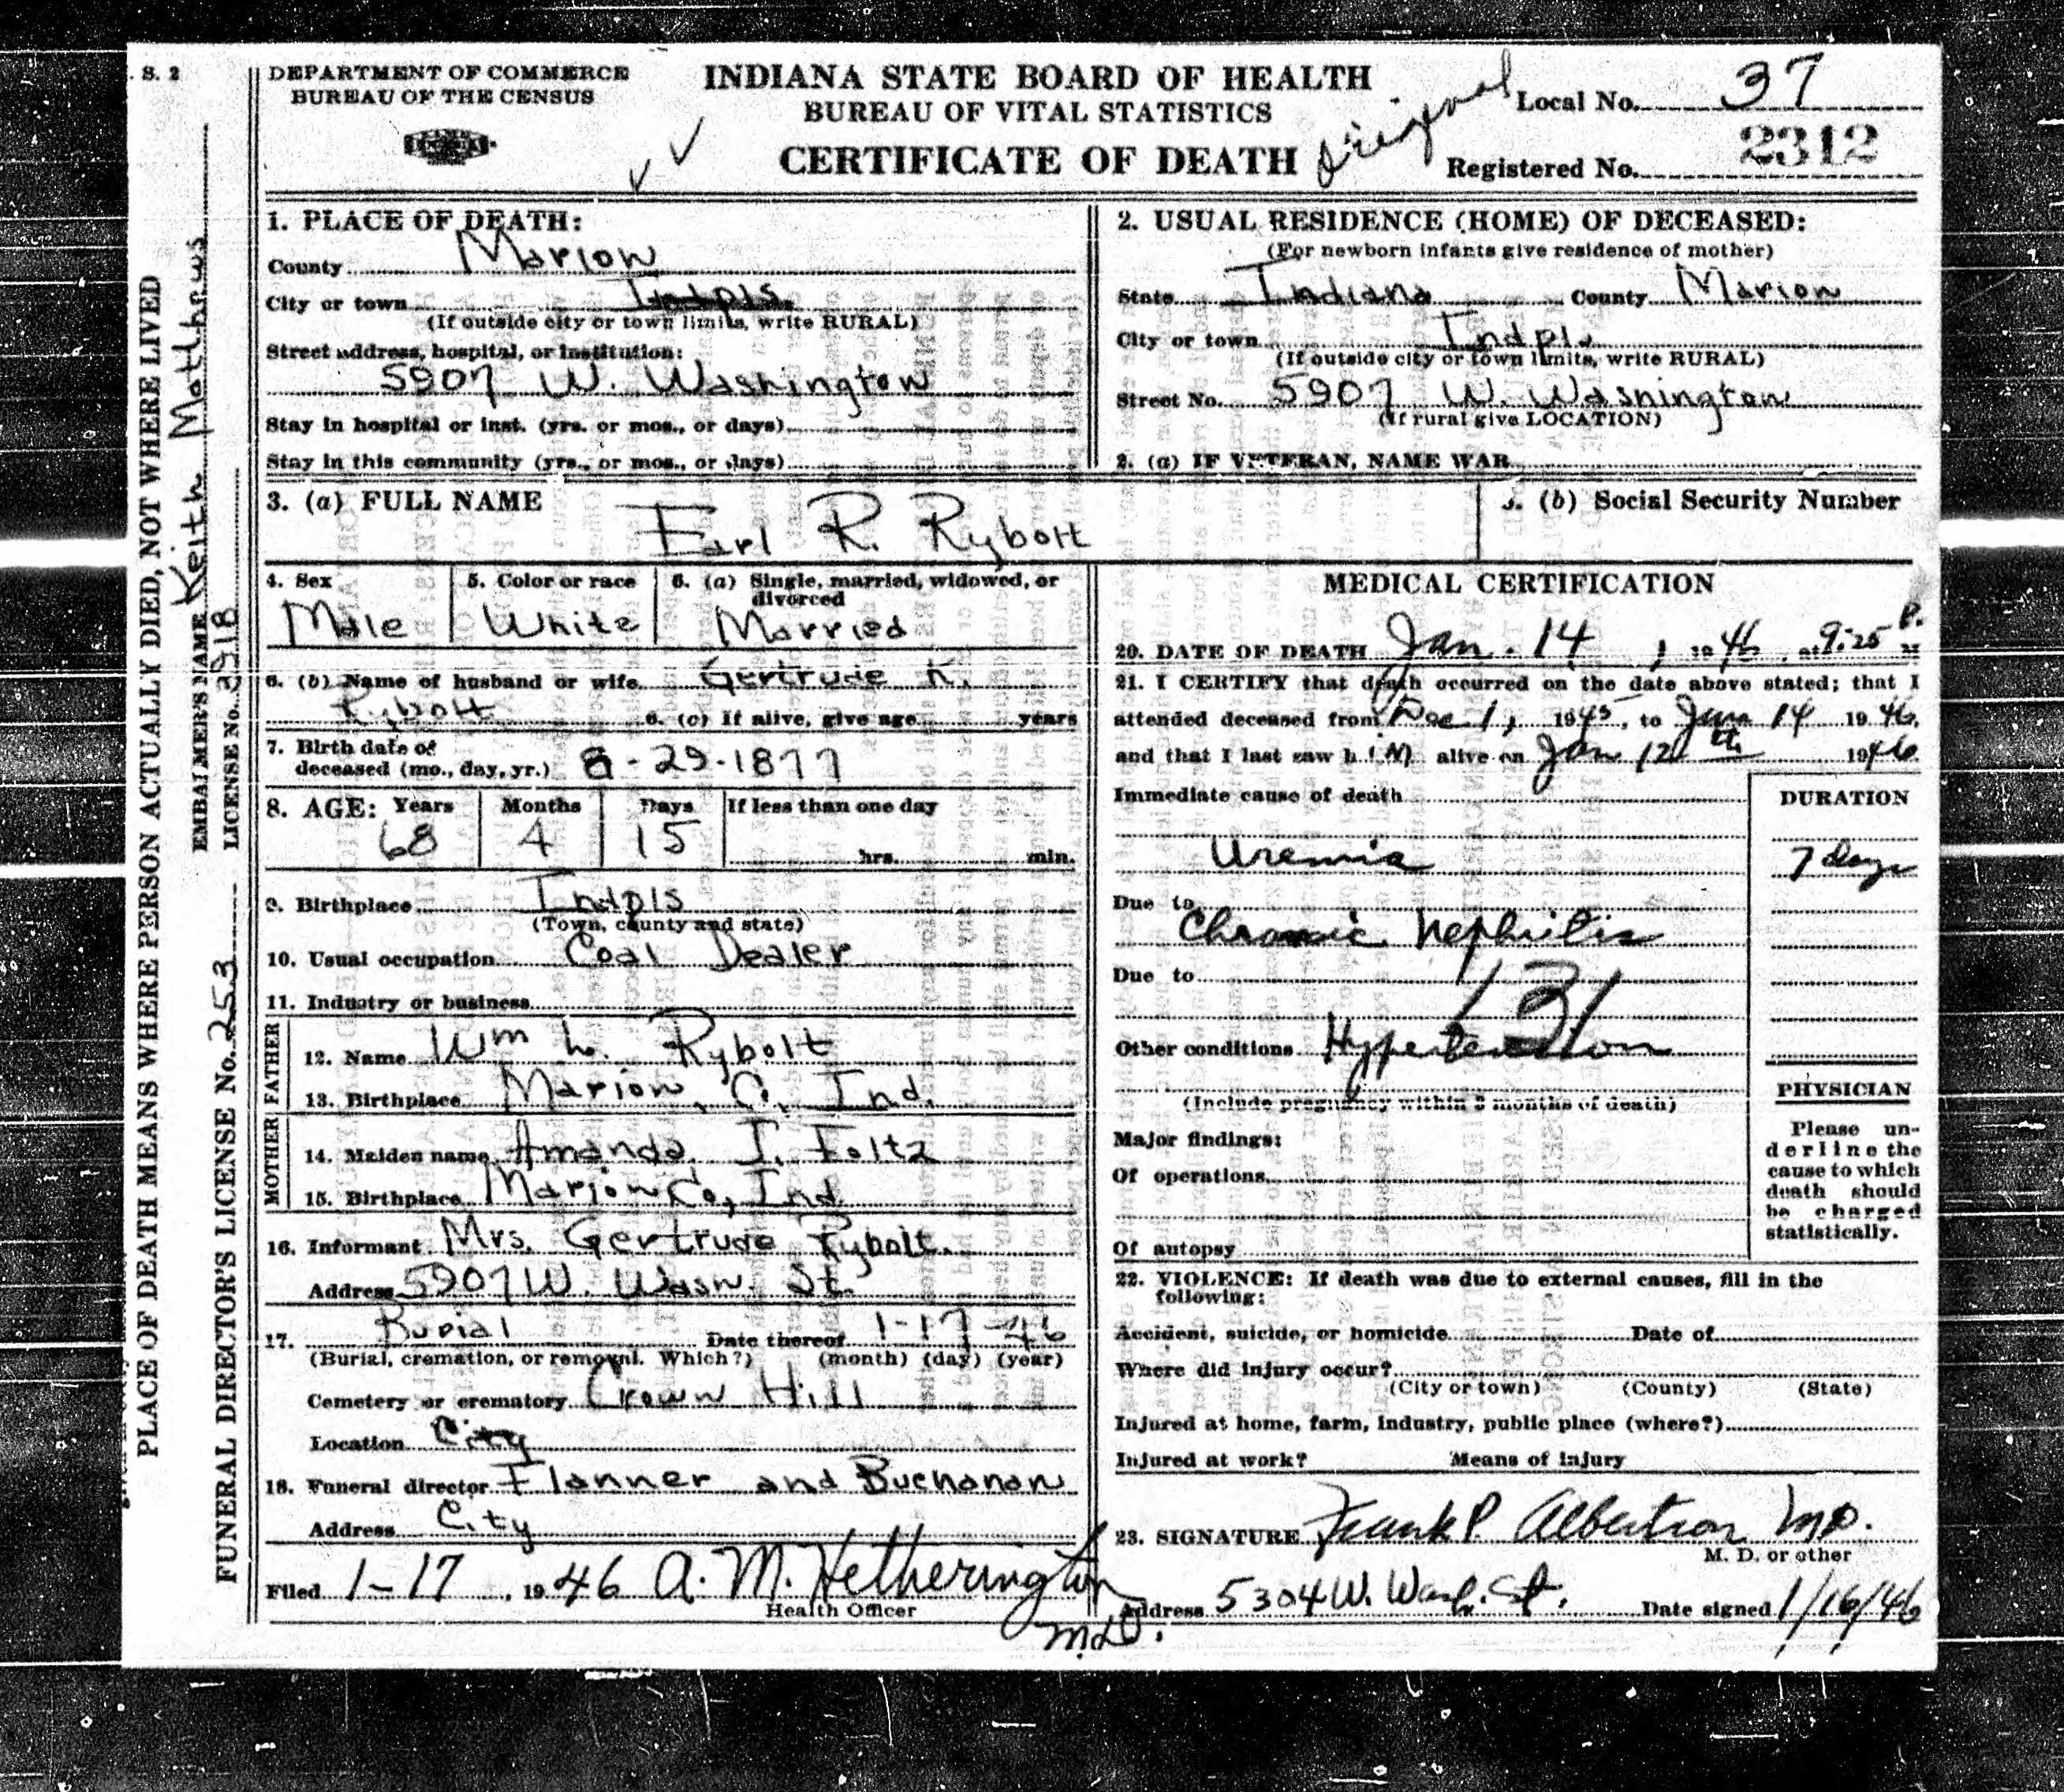 S. 2
DEPARTMENT OF COMMERCE
BUREAU OF THE CENSUS
INDIANA STATE BOARD OF HEALTH
BUREAU OF VITAL STATISTICS
CERTIFICATE OF DEATH
Original
Local No. 37
Registered No. 2312
PLACE OF DEATH MEANS WHERE PERSON ACTUALLY DIED, NOT WHERE LIVED
EMBALMER'S NAME Keith Mathews
LICENSE No. 3918
FUNERAL DIRECTOR'S LICENSE No. 253
1. PLACE OF DEATH:
County Marion
City or town Indpls.
(If outside city or town limits, write RURAL)
Street address, hospital, or institution:
5907 W. Washington
Stay in hospital or inst. (yrs. or mos., or days)
Stay in this community (yrs., or mos., or days)
2. USUAL RESIDENCE (HOME) OF DECEASED:
(For newborn infants give residence of mother)
State Indiana County Marion
City or town Indpls
(If outside city or town limits, write RURAL)
Street No. 5907 W. Washington
(If rural give LOCATION)
2. (a) IF VETERAN, NAME WAR
3. (a) FULL NAME Earl R. Rybolt
3. (b) Social Security Number
4. Sex Male
5. Color or race White
6. (a) Single, married, widowed, or divorced Married
6. (b) Name of husband or wife Gertrude K.
Rybolt 6. (c) If alive, give age years
7. Birth date of
deceased (mo., day, yr.) 8-29-1877
8. AGE: Years 68 Months 4 Days 15 If less than one day
hrs. min.
9. Birthplace Indpls
(Town, county and state)
10. Usual occupation Coal Dealer
11. Industry or business
FATHER
12. Name Wm L. Rybolt
13. Birthplace Marion, Co, Ind.
MOTHER
14. Maiden name Amanda J. Foltz
15. Birthplace Marion Co, Ind.
16. Informant Mrs. Gertrude Rybolt.
Address 5907 W. Wash. St.
17. Burial Date thereof 1-17-46
(Burial, cremation, or removal. Which?) (month) (day) (year)
Cemetery or crematory Crown Hill
Location City
18. Funeral director Flanner and Buchanan
Address City
Filed 1-17, 1946 A. M. Hetherington
Health Officer
M.D.
MEDICAL CERTIFICATION
20. DATE OF DEATH Jan. 14, 1946, at 9:25 P. M
21. I CERTIFY that death occurred on the date above stated; that I
attended deceased from Dec 1, 1945, to Jan 14 1946,
and that I last saw him alive on Jan 12th 1946.
Immediate cause of death
DURATION
Uremia 7 days
Due to
Chronic Nephritis
Due to
131
Other conditions Hypertension
(Include pregnancy within 3 months of death)
Major findings:
Of operations
Of autopsy
PHYSICIAN
Please un-
derline the
cause to which
death should
be charged
statistically.
22. VIOLENCE: If death was due to external causes, fill in the
following:
Accident, suicide, or homicide Date of
Where did injury occur?
(City or town) (County) (State)
Injured at home, farm, industry, public place (where?)
Injured at work? Means of injury
23. SIGNATURE Frank P. Albertson M.D.
M. D. or other
Address 5304 W. Wash. St. Date signed 1/16/46